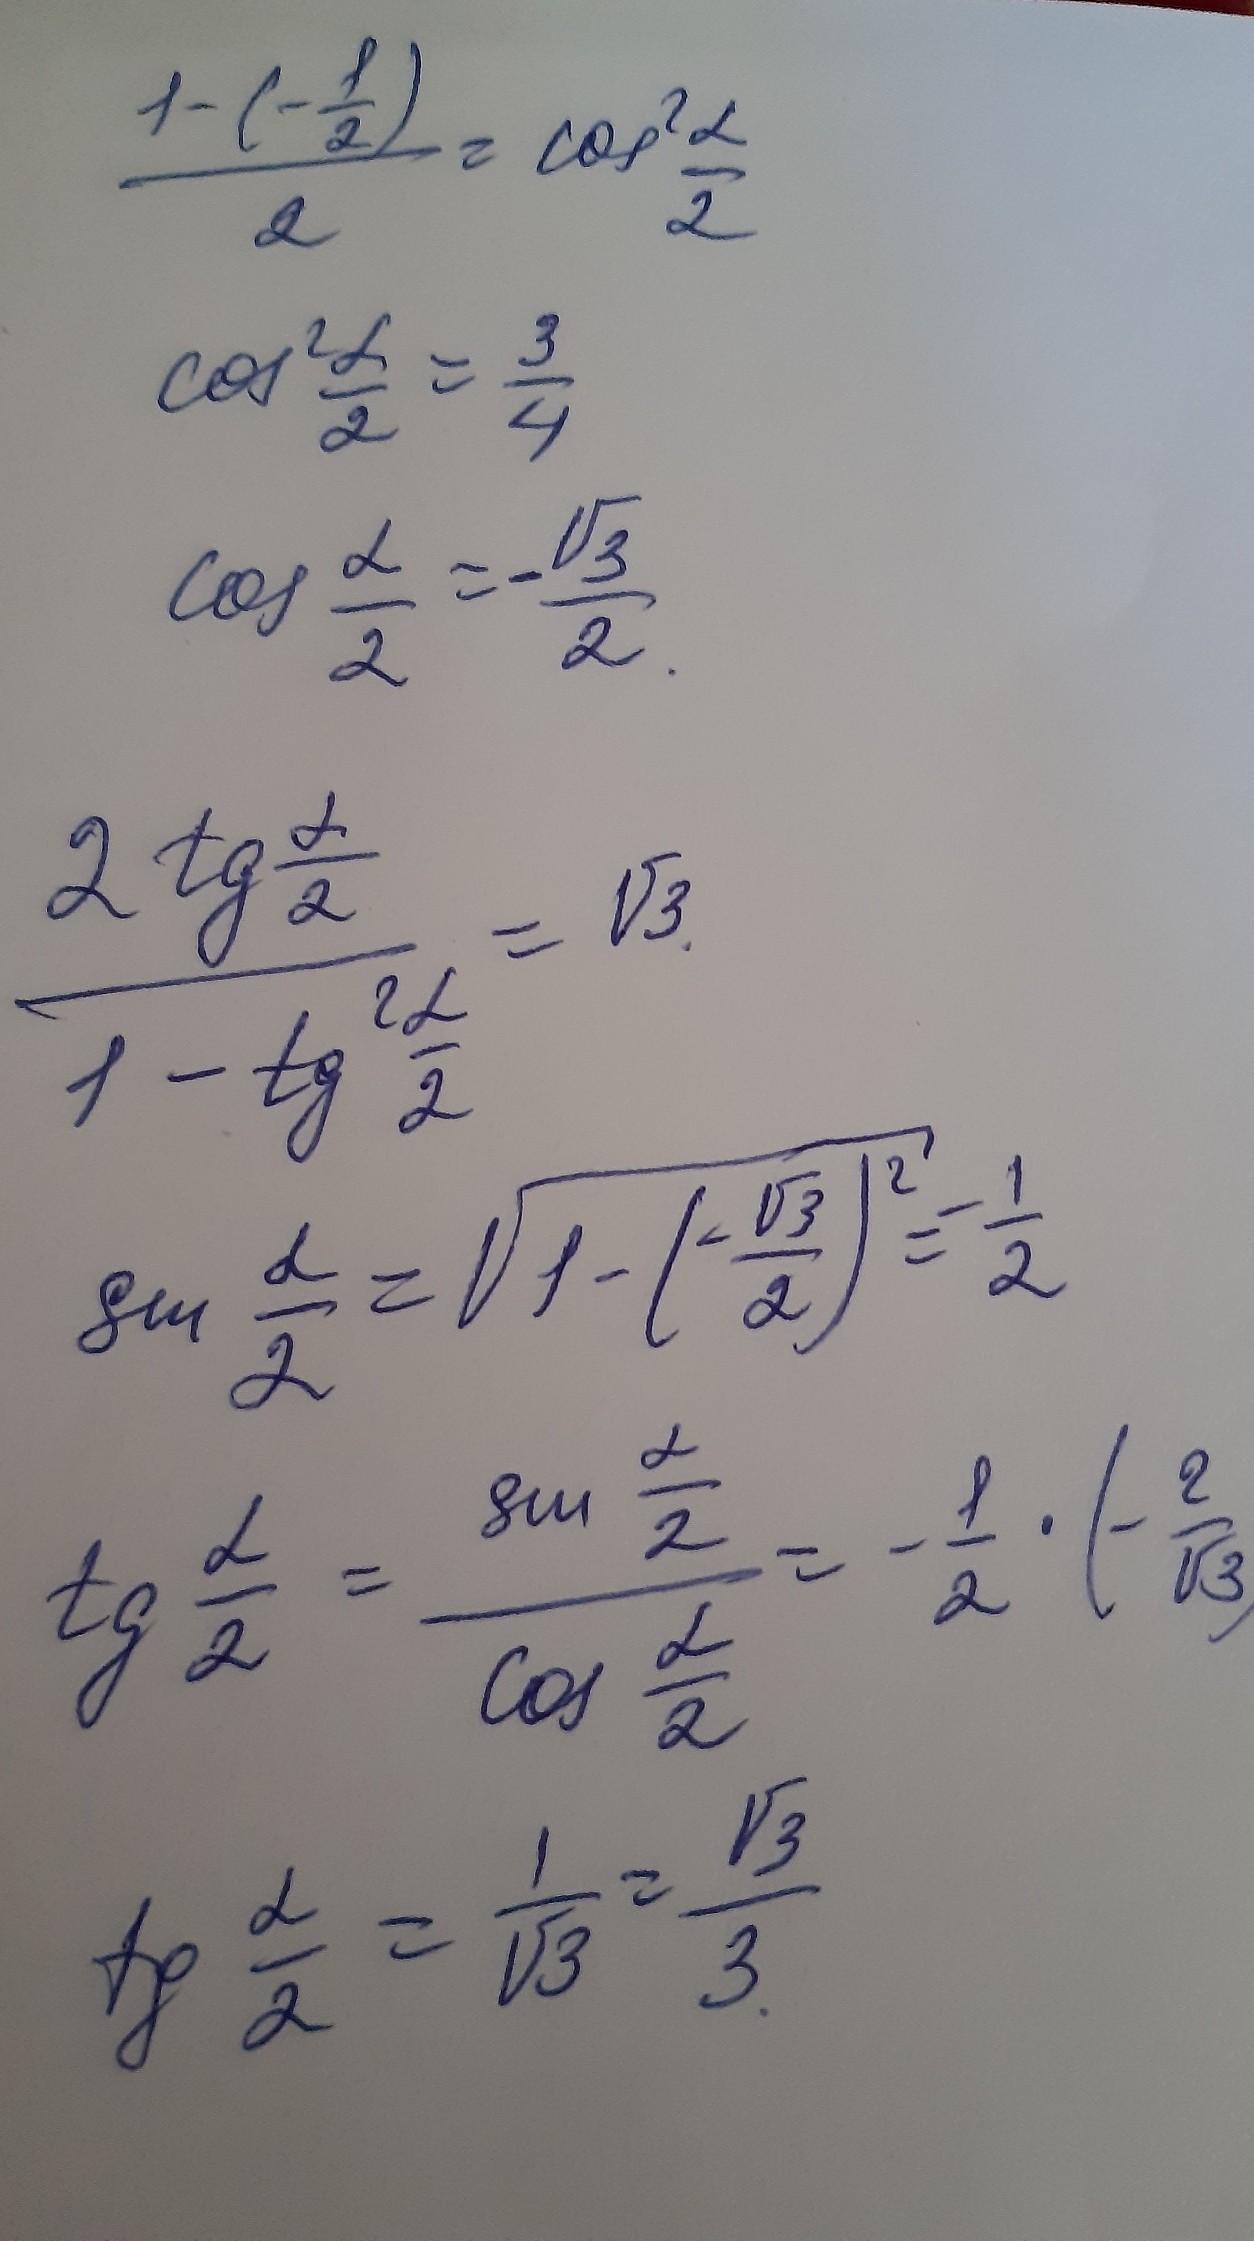 (1 - (-1/2))/2 = cos² α/2
cos² α/2 = 3/4
cos α/2 = -√3/2.
(2 tg α/2)/(1 - tg² α/2) = √3.
sin α/2 = √(1 - (-√3/2)²) = -1/2
tg α/2 = (sin α/2)/(cos α/2) = -1/2 · (-2/√3)
tg α/2 = 1/√3 = √3/3.